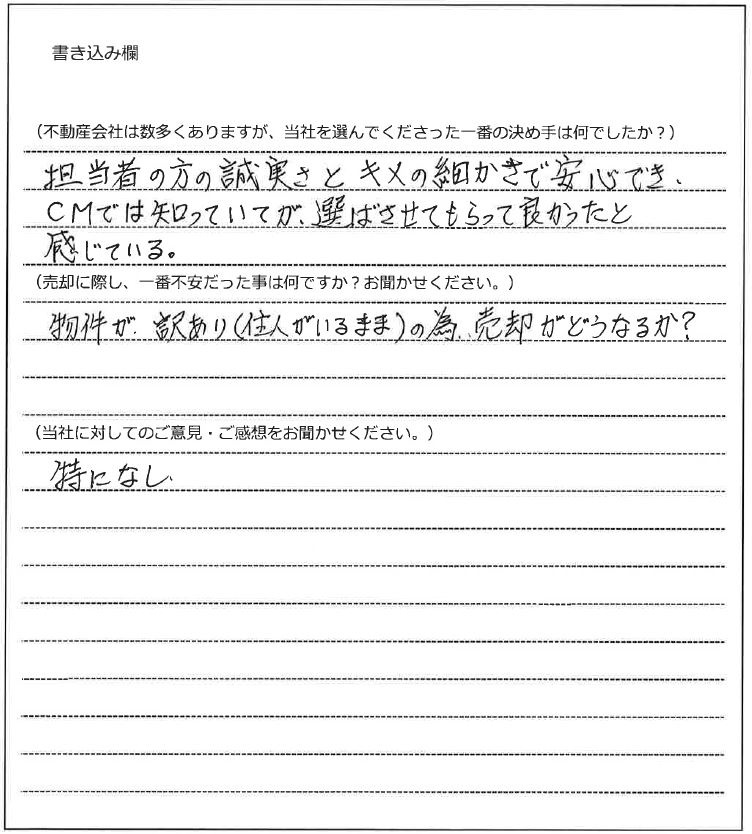 書き込み欄
(不動産会社は数多くありますが、当社を選んでくださった一番の決め手は何でしたか？)
担当者の方の誠実さと キメの細かさで安心でき、
CMでは知っていてが、選ばさせてもらって良かったと
感じている。
(売却に際し、一番不安だった事は何ですか？お聞かせください。)
物件が、訳あり(住人がいるまま)の為、売却がどうなるか?
(当社に対してのご意見・ご感想をお聞かせください。)
特になし、